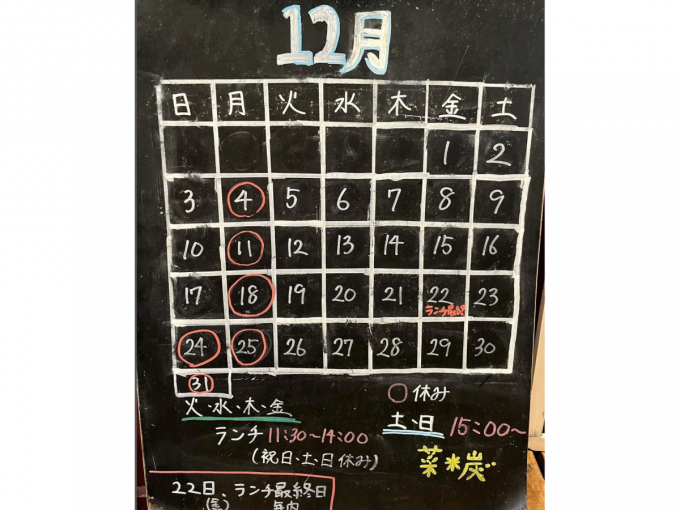 12月
日 月 火 水 木 金 土
1 2
3 4 5 6 7 8 9
10 11 12 13 14 15 16
17 18 19 20 21 22 23
ランチ最終
24 25 26 27 28 29 30
31
○休み
火・水・木・金
土・日 15:00~
ランチ11:30~14:00
(祝日、土、日休み)
菜*炭
22日、ランチ最終日
(金) 年内